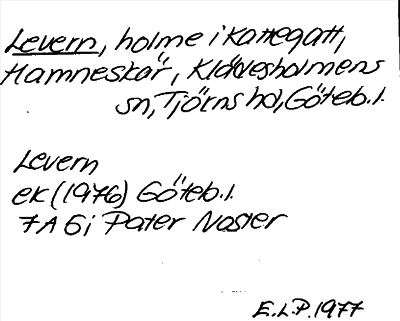 Levern, holme i Kattegatt,
Hamneskär, Klädesholmens
sn, Tjörns hd, Göteb.l.
Levern
ek (1976) Göteb.l.
7A 6i Pater Noster
E.L.P. 1977